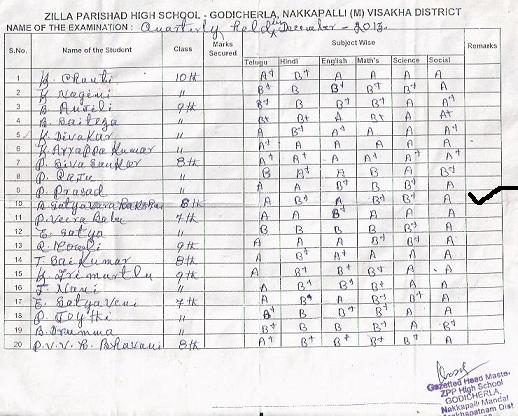 ZILLA PARISHAD HIGH SCHOOL - GODICHERLA, NAKKAPALLI (M) VISAKHA DISTRICT
NAME OF THE EXAMINATION : Quarterly held in December - 2013.
S.No. Name of the Student Class Marks Secured Subject Wise Remarks
Telugu Hindi English Math's Science Social
1 K. Chanti 10th A+ B+ A A A A
2 K. Nagini " B+ B B+ B+ B+ A
3 B. Anjili 9th B+ B B+ A A A+
4 B. Saiteja " B+ B+ A B+ A A+
5 K. Divakar " A B+ A+ A A A
6 K. Ayyappa Kumar " A A A A A A
7 P. Siva Sankar 8th A+ A+ A A+ A+ A+
8 P. Raju " B A+ A B A B+
9 P. Prasad " A A B+ B B+ A
10 B. Satyavara 8th A B+ A B+ B+ A
11 P. Veera Babu 7th A A B+ A A A
12 E. Satya " B B B B B+ A
13 9th A A A B+ B+ A
14 T. Sai Kumar 8th A B+ A+ A B+ A
15 K. Trimurtulu 9th A B+ B+ B+ A A
16 T. Nani " B+ B+ B+ B+ A
17 E. Satyaveni 7th A B+ A B+ B+ A
18 P. Jyothi " B+ B+ B+ B+ A
19 B. " B+ B B B+ A B+
20 P.V.V.B. Bhavani 8th A+ B+ B+ B+ A
Gazetted Head Master
ZPP High School
GODICHERLA,
Nakkapalli Mandal